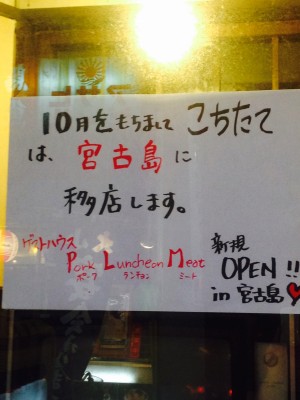 10月をもちまして こちたて
は、宮古島に
移店します。
ゲストハウス
Pork Luncheon Meat
ポーク ランチョン ミート
新規
OPEN!!
in 宮古島♥